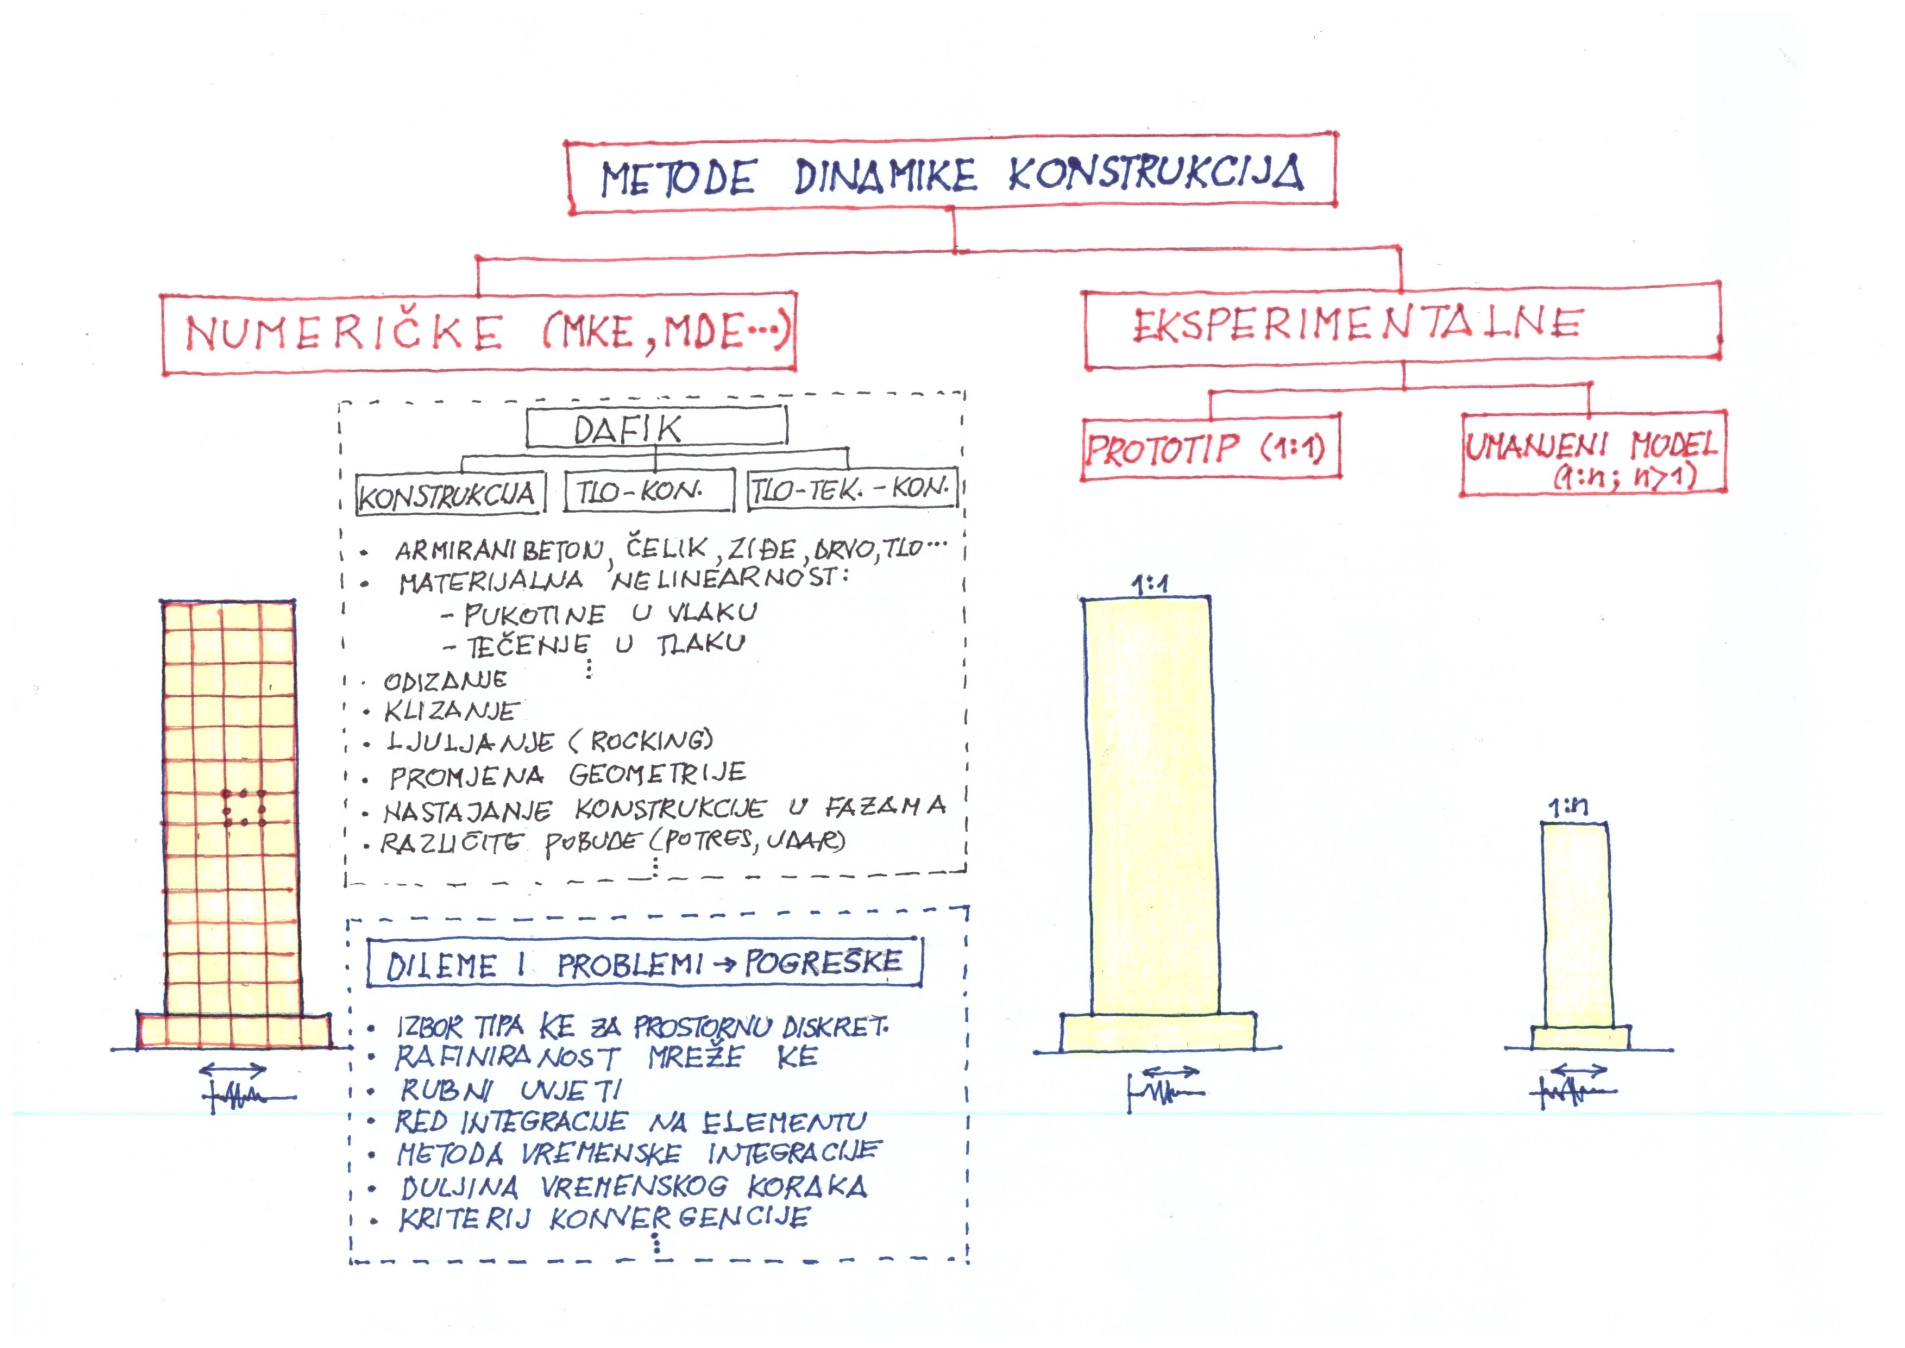 METODE DINAMIKE KONSTRUKCIJA
NUMERIČKE (MKE, MDE...)
EKSPERIMENTALNE
PROTOTIP (1:1)
UMANJENI MODEL
(1:n; n>1)
DAFIK
KONSTRUKCIJA
TLO-KON.
TLO-TEK.-KON.
• ARMIRANI BETON, ČELIK, ZIĐE, DRVO, TLO...
• MATERIJALNA NELINEARNOST:
- PUKOTINE U VLAKU
- TEČENJE U TLAKU
• ODIZANJE
• KLIZANJE
• LJULJANJE (ROCKING)
• PROMJENA GEOMETRIJE
• NASTAJANJE KONSTRUKCIJE U FAZAMA
• RAZLIČITE POBUDE (POTRES, UDAR)
DILEME I PROBLEMI → POGREŠKE
• IZBOR TIPA KE ZA PROSTORNU DISKRET.
• RAFINIRANOST MREŽE KE
• RUBNI UVJETI
• RED INTEGRACIJE NA ELEMENTU
• METODA VREMENSKE INTEGRACIJE
• DULJINA VREMENSKOG KORAKA
• KRITERIJ KONVERGENCIJE
1:1
1:n